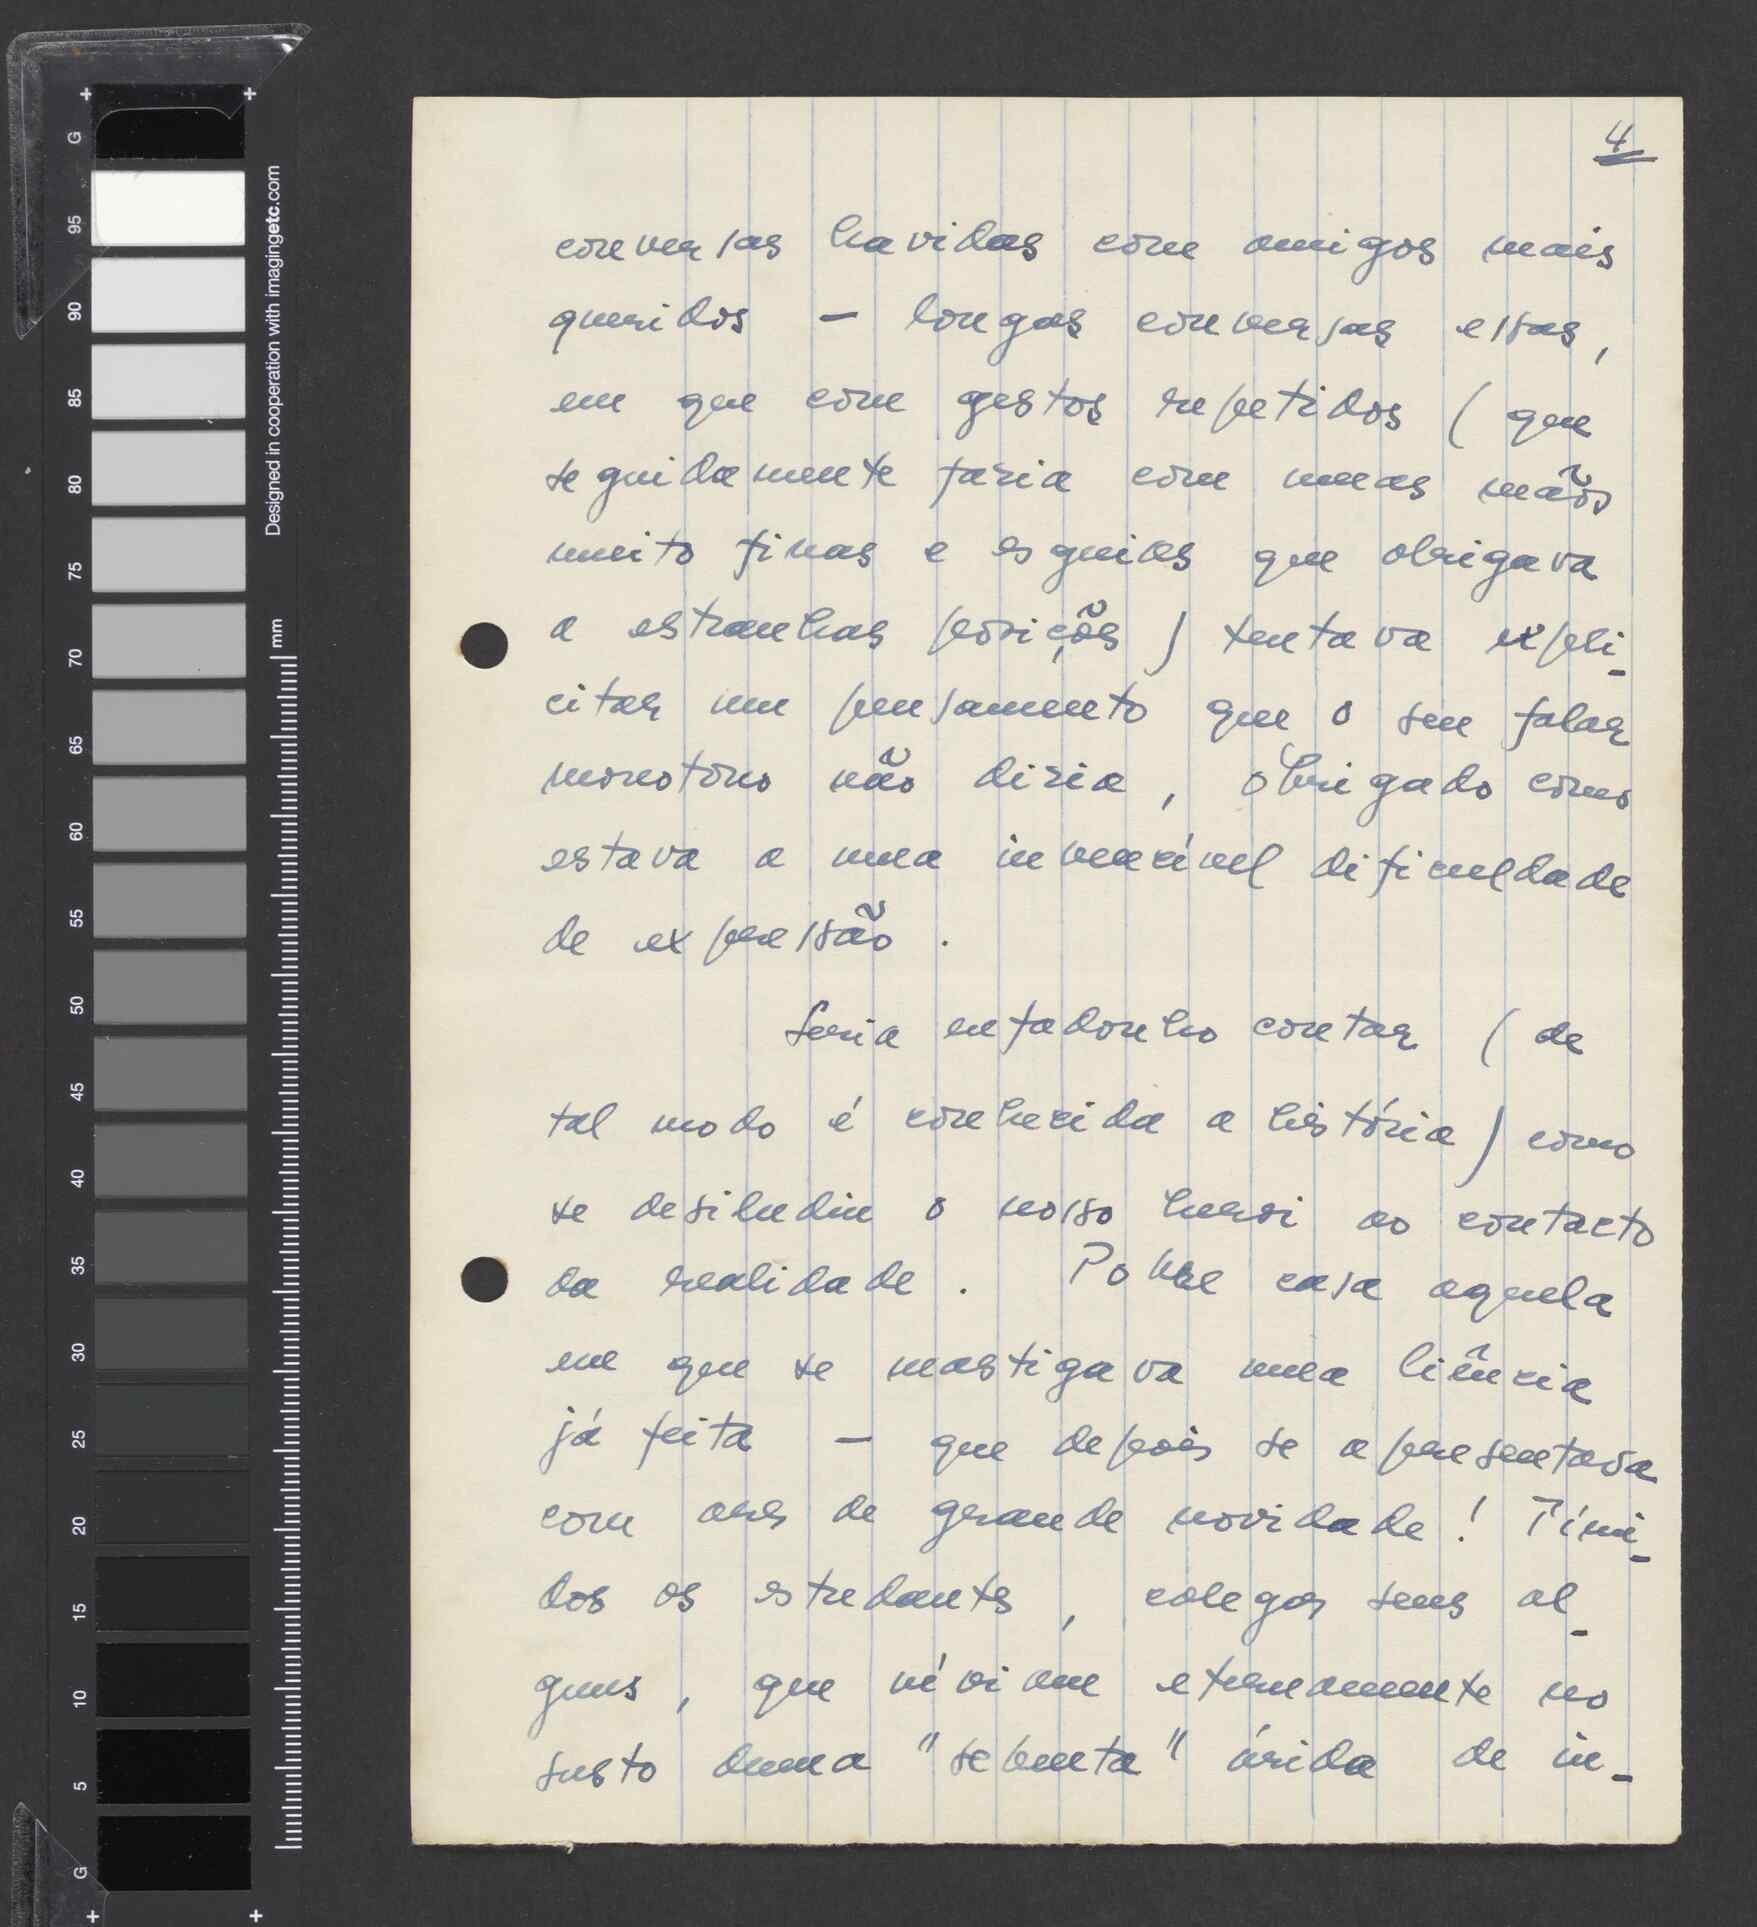 4
conversas havidas com amigos mais
queridos – longas conversas essas,
em que com gestos repetidos (que
seguidamente faria com umas mãos
muito finas e esguias que obrigava
a estranhas posições) tentava expli-
citar um pensamento que o seu falar
monotono não diria, obrigado como
estava a uma invencível dificuldade
de expressão.
Seria enfadonho contar (de
tal modo é conhecida a história) como
se desiludiu o nosso heroi ao contacto
da realidade. Pobre casa aquela
em que se mastigava uma ciência
já feita – que depois se apresentava
com ares de grande novidade! Tími-
dos os estudantes, colegas seus al-
guns, que viviam eternamente no
susto duma "sebenta" árida de in-
Designed in cooperation with imagingetc.com
mm
G
95
90
85
80
75
70
65
60
55
50
45
40
35
30
25
20
15
10
5
G